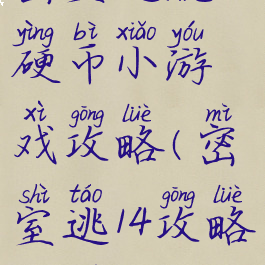 yìng bì xiǎo yóu
硬币小游
xì gōng lüè mì
戏攻略(密
shì táo gōng lüè
室逃14攻略